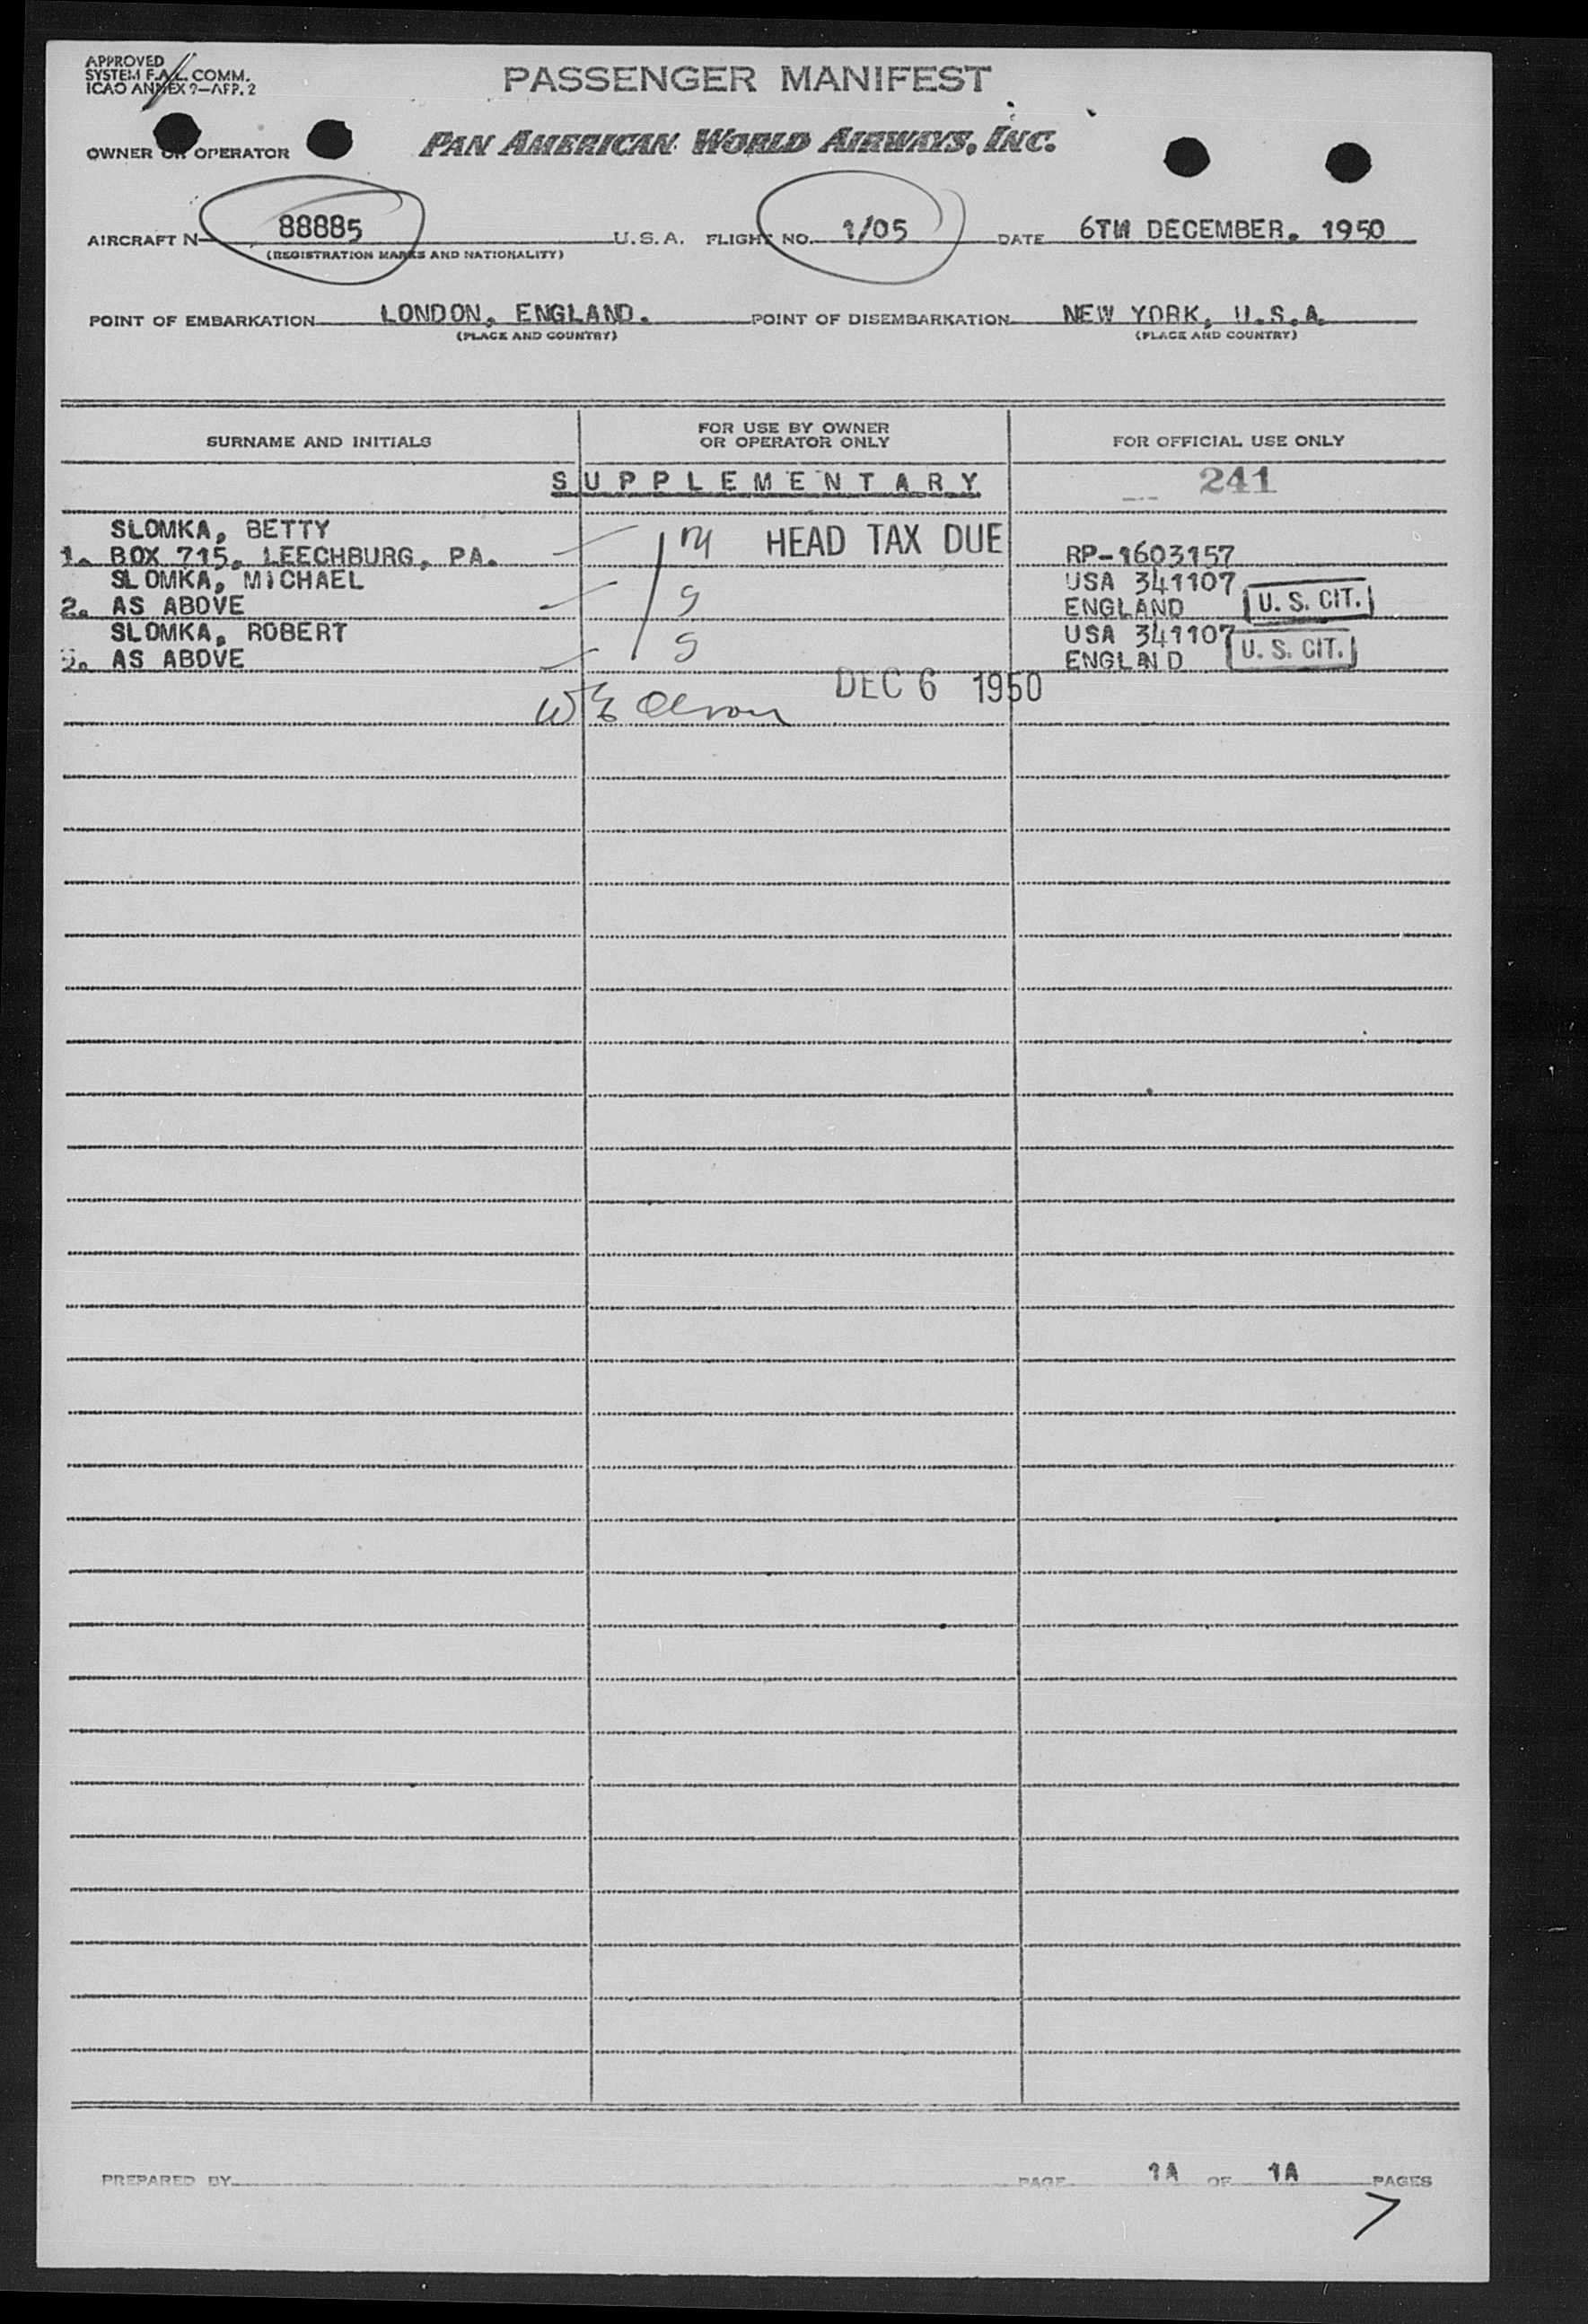 APPROVED
SYSTEM F.A.L. COMM.
ICAO ANNEX 9-APP. 2
PASSENGER MANIFEST
OWNER OR OPERATOR PAN AMERICAN WORLD AIRWAYS, INC.
AIRCRAFT N 88885 U.S.A. FLIGHT NO. 1/05 DATE 6TH DECEMBER. 1950
(REGISTRATION MARKS AND NATIONALITY)
POINT OF EMBARKATION LONDON, ENGLAND. POINT OF DISEMBARKATION NEW YORK, U.S.A.
(PLACE AND COUNTRY) (PLACE AND COUNTRY)
SURNAME AND INITIALS FOR USE BY OWNER OR OPERATOR ONLY FOR OFFICIAL USE ONLY
SUPPLEMENTARY 241
SLOMKA, BETTY M HEAD TAX DUE
1. BOX 715, LEECHBURG, PA. RP-1603157
SLOMKA, MICHAEL USA 341107
2. AS ABOVE S ENGLAND U. S. CIT.
SLOMKA, ROBERT USA 341107
3. AS ABOVE S ENGLAND U. S. CIT.
DEC 6 1950
PREPARED BY PAGE 1A OF 1A PAGES